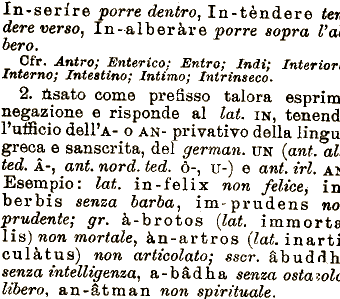 In-serìre porre dentro, In-tèndere ten
dere verso, In-alberàre porre sopra l'al
bero.
Cfr. Antro; Enterico; Entro; Indi; Interior
Interno; Intestino; Intimo; Intrinseco.
2. Usato come prefisso talora esprim
negazione e risponde al lat. IN, tenend
l'ufficio dell'A- o AN- privativo della lingu
greca e sanscrita, del german. UN (ant. al
ted. Â-, ant. nord. ted. ô-, U-) e ant. irl. AN
Esempio: lat. in-felix non felice, in
berbis senza barba, im-prudens no
prudente; gr. à-brotos (lat. immorta
lis) non mortale, àn-artros (lat. inarti
culàtus) non articolato; sscr. âbuddh
senza intelligenza, a-bâdha senza ostacolo
libero, an-âtman non spirituale.